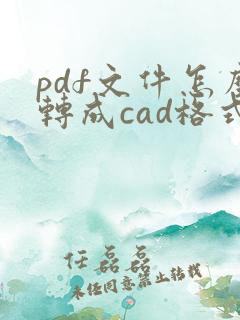 pdf文件怎麼
轉成cad格式
任磊磊
未任同意禁止轉載